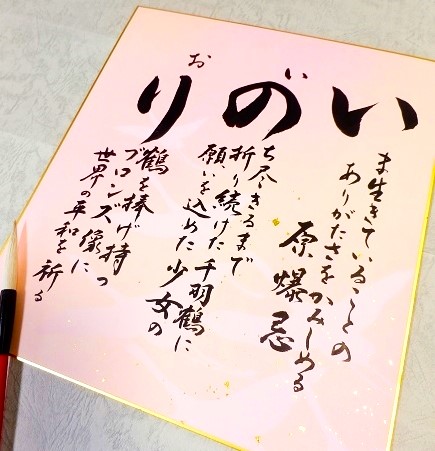 いま生きていることの
ありがたさをかみしめる
原爆忌
いのち尽きるまで
折り続けた千羽鶴に
願いを込めた少女の
おり鶴を捧げ持つ
ブロンズ像に
世界の平和を祈る